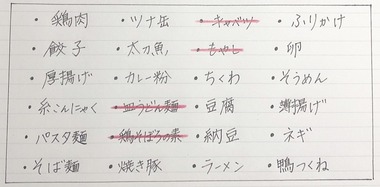 ・鶏肉 ・ツナ缶 ・キャベツ ・ふりかけ
・餃子 ・太刀魚 ・もやし ・卵
・厚揚げ ・カレー粉 ・ちくわ ・そうめん
・糸こんにゃく ・皿うどん麺 ・豆腐 ・薄揚げ
・パスタ麺 ・鶏そぼろの素 ・納豆 ・ネギ
・そば麺 ・焼き豚 ・ラーメン ・鴨つくね